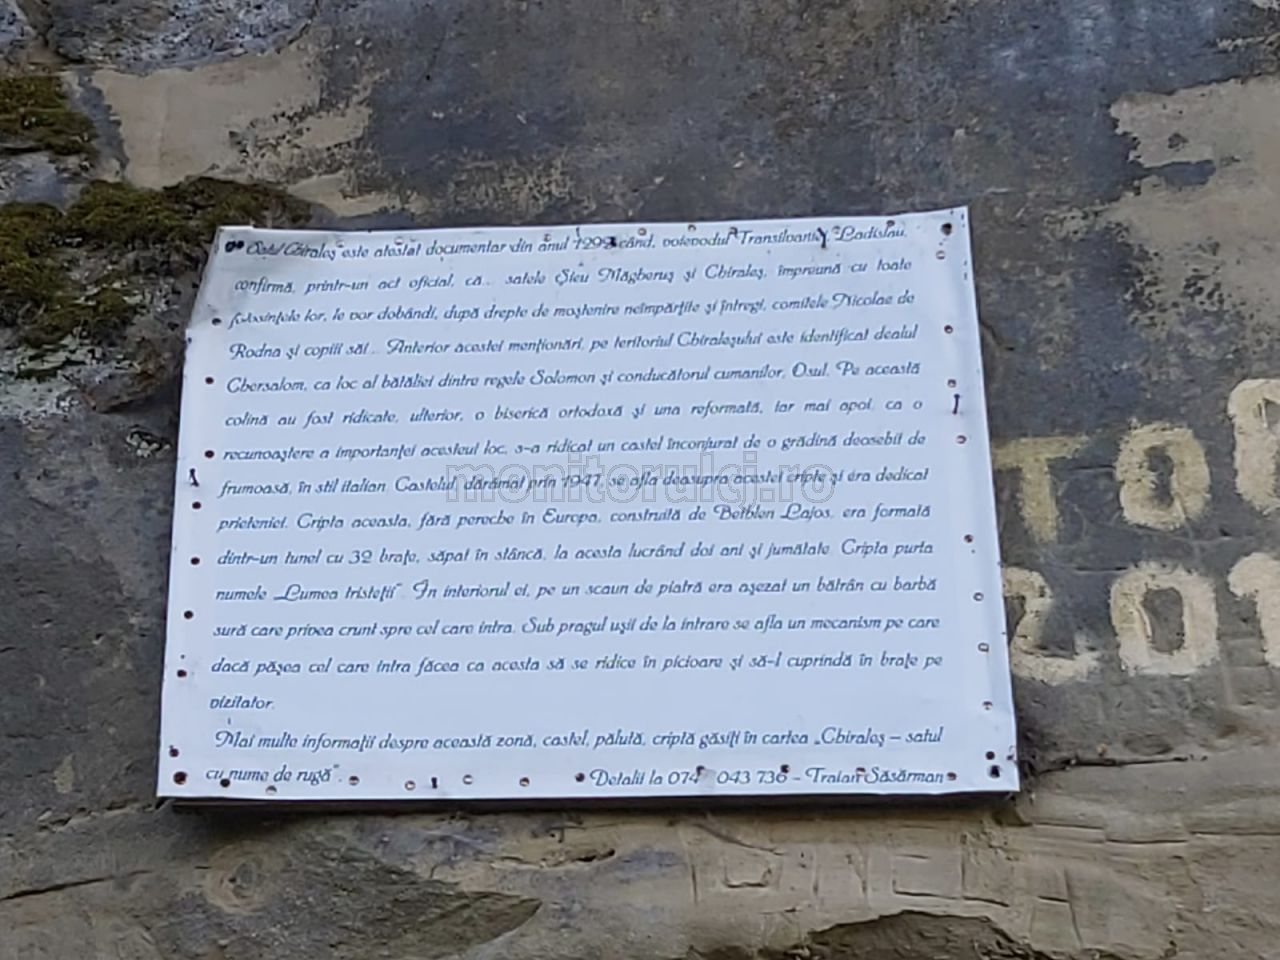 Satul Chiraleş este atestat documentar din anul 1292 când, voievodul Transilvaniei, Ladislau,
confirmă, printr-un act oficial, că... satele Şieu Măgheruş şi Chiraleş, împreună cu toate
folosinţele lor, le vor dobândi, după drepte de moştenire neîmpărţite şi întregi, comitele Nicolae de
Rodna şi copiii săi... Anterior acestei menţionări, pe teritoriul Chiraleşului este identificat dealul
Ghersalom, ca loc al bătăliei dintre regele Solomon şi conducătorul cumanilor, Osul. Pe această
colină au fost ridicate, ulterior, o biserică ortodoxă şi una reformată, iar mai apoi, ca o
recunoaştere a importanţei acesteui loc, s-a ridicat un castel înconjurat de o grădină deosebit de
frumoasă, în stil italian. Castelul, dărâmat prin 1947, se afla deasupra acestei cripte şi era dedicat
prieteniei. Cripta aceasta, fără pereche în Europa, construită de Bethlen Lajos, era formată
dintr-un tunel cu 32 braţe, săpat în stâncă, la acesta lucrând doi ani şi jumătate. Cripta purta
numele „Lumea tristeţii". În interiorul ei, pe un scaun de piatră era aşezat un bătrân cu barbă
sură care privea crunt spre cel care intra. Sub pragul uşii de la intrare se afla un mecanism pe care
dacă păşea cel care intra făcea ca acesta să se ridice în picioare şi să-l cuprindă în braţe pe
vizitator.
Mai multe informaţii despre această zonă, castel, păluţă, criptă găsiţi în cartea „Chiraleş – satul
cu nume de rugă".
Detalii la 074 043 736 – Traian Săsărman
monitorulcj.ro
TO
201